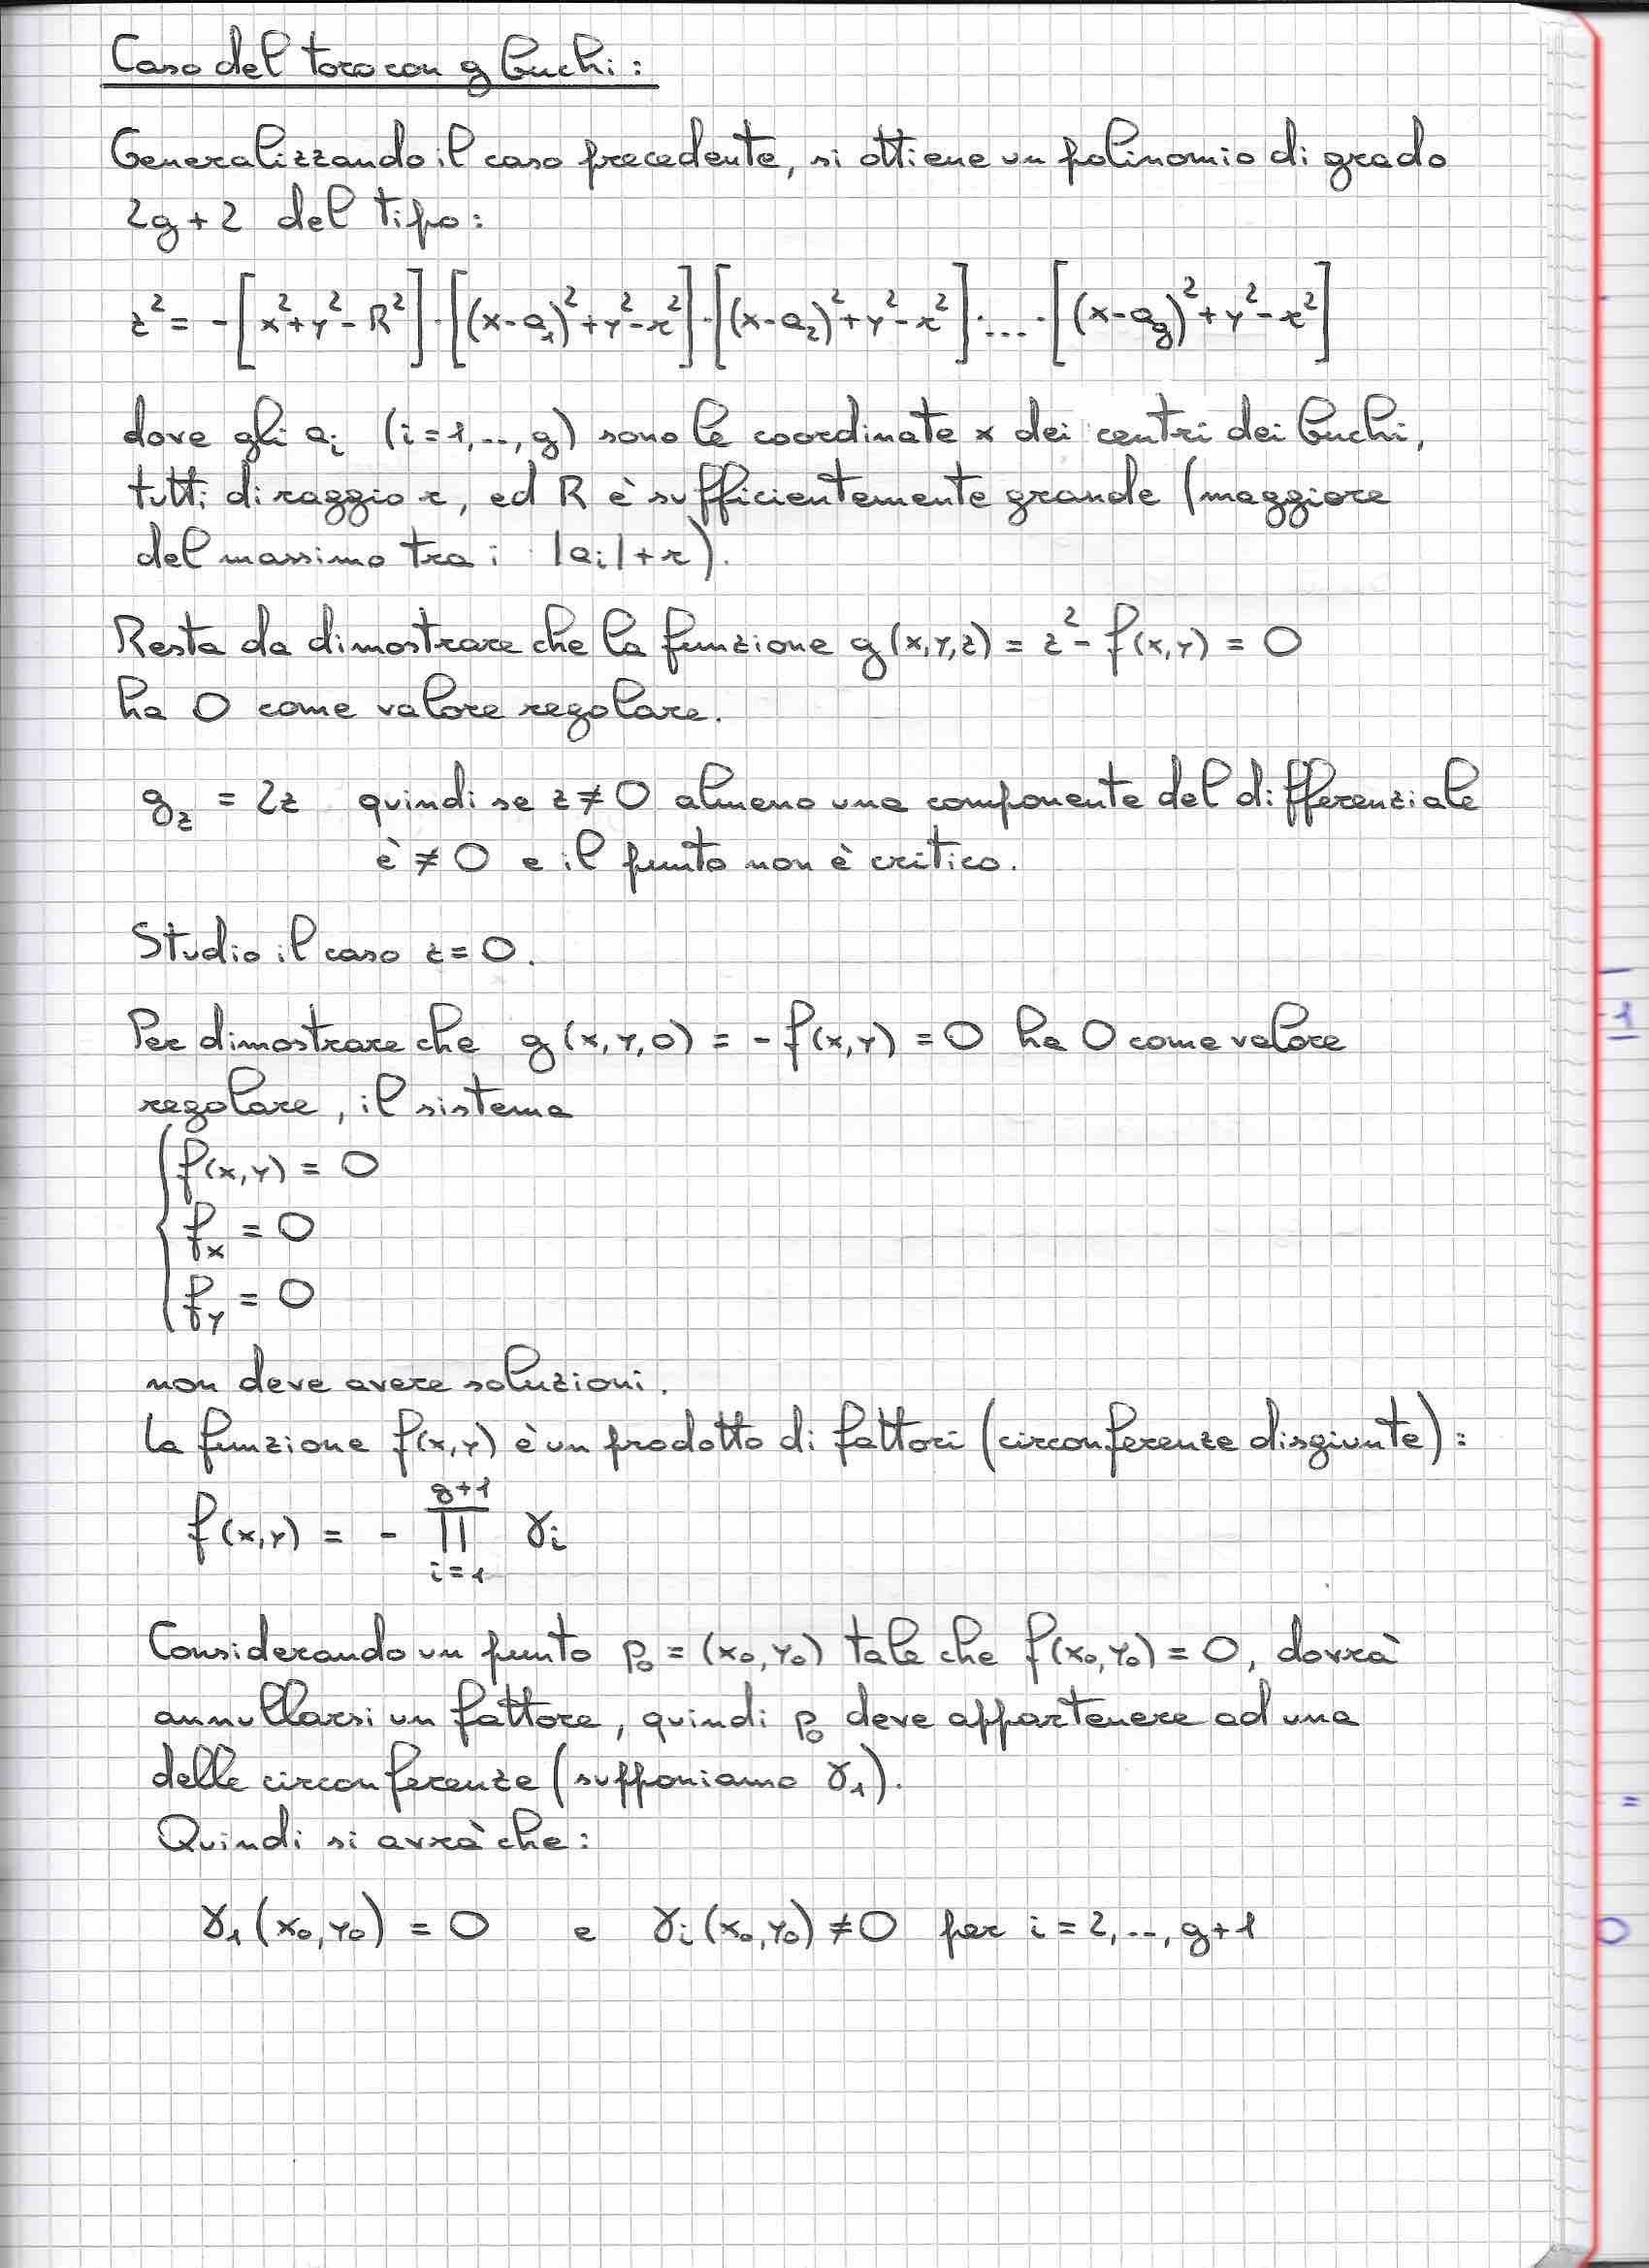 Caso del toro con g buchi:
Generalizzando il caso precedente, si ottiene un polinomio di grado
2g+2 del tipo:
z² = -[x²+y²-R²]·[(x-a₁)²+y²-r²]·[(x-a₂)²+y²-r²]·...·[(x-a_g)²+y²-r²]
dove gli aᵢ (i=1,..,g) sono le coordinate x dei centri dei buchi,
tutti di raggio r, ed R è sufficientemente grande (maggiore
del massimo tra i |aᵢ|+r).
Resta da dimostrare che la funzione g(x,y,z) = z² - f(x,y) = 0
ha 0 come valore regolare.
g_z = 2z quindi se z≠0 almeno una componente del differenziale
è ≠0 e il punto non è critico.
Studio il caso z=0.
Per dimostrare che g(x,y,0) = -f(x,y) = 0 ha 0 come valore
regolare, il sistema
{ f(x,y) = 0
f_x = 0
f_y = 0
non deve avere soluzioni.
La funzione f(x,y) è un prodotto di fattori (circonferenze disgiunte):
f(x,y) = - ∏_{i=1}^{g+1} γᵢ
Considerando un punto p₀=(x₀,y₀) tale che f(x₀,y₀)=0, dovrà
annullarsi un fattore, quindi p₀ deve appartenere ad una
delle circonferenze (supponiamo γ₁).
Quindi si avrà che:
γ₁(x₀,y₀) = 0 e γᵢ(x₀,y₀) ≠ 0 per i=2,..,g+1